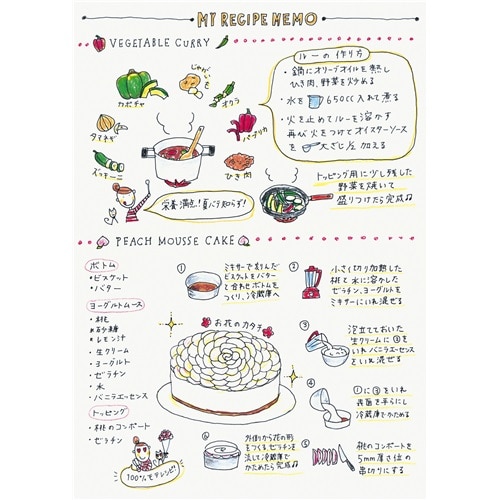 MY RECIPE MEMO
VEGETABLE CURRY
カボチャ
じゃがいも
オクラ
タマネギ
パプリカ
ズッキーニ
ひき肉
栄養満点!夏バテ知らず!
ルーの作り方
・鍋にオリーブオイルを熱し
ひき肉、野菜を炒める
・水を 650cc入れて煮る
・火を止めてルーを溶かす
再び火をつけてオイスターソース
を 大さじ 加える
トッピング用に少し残した
野菜を焼いて
盛りつけたら完成♫
PEACH MOUSSE CAKE
ボトム
・ビスケット
・バター
ヨーグルトムース
・桃
・砂糖
・レモン汁
・生クリーム
・ヨーグルト
・ゼラチン
・水
・バニラエッセンス
トッピング
・桃のコンポート
・ゼラチン
100%モテレシピ!
① ミキサーで刻んだ
ビスケットをバター
と合わせボトムを
つくり、冷蔵庫へ
② 小さく切り加熱した
桃と水に溶かした
ゼラチン、ヨーグルトを
ミキサーにいれ混ぜる
お花のカタチ
③ 泡立てておいた
生クリームに②を
いれバニラエッセンス
をいれ混ぜる
④ ①に③をいれ
表面を平らにし
冷蔵庫でかためる
⑤ 桃のコンポートを
5mm厚さ位の
串切りにする
⑥ 外側から花の形
をつくる、ゼラチンを
流して冷蔵庫で
かためたら完成♫